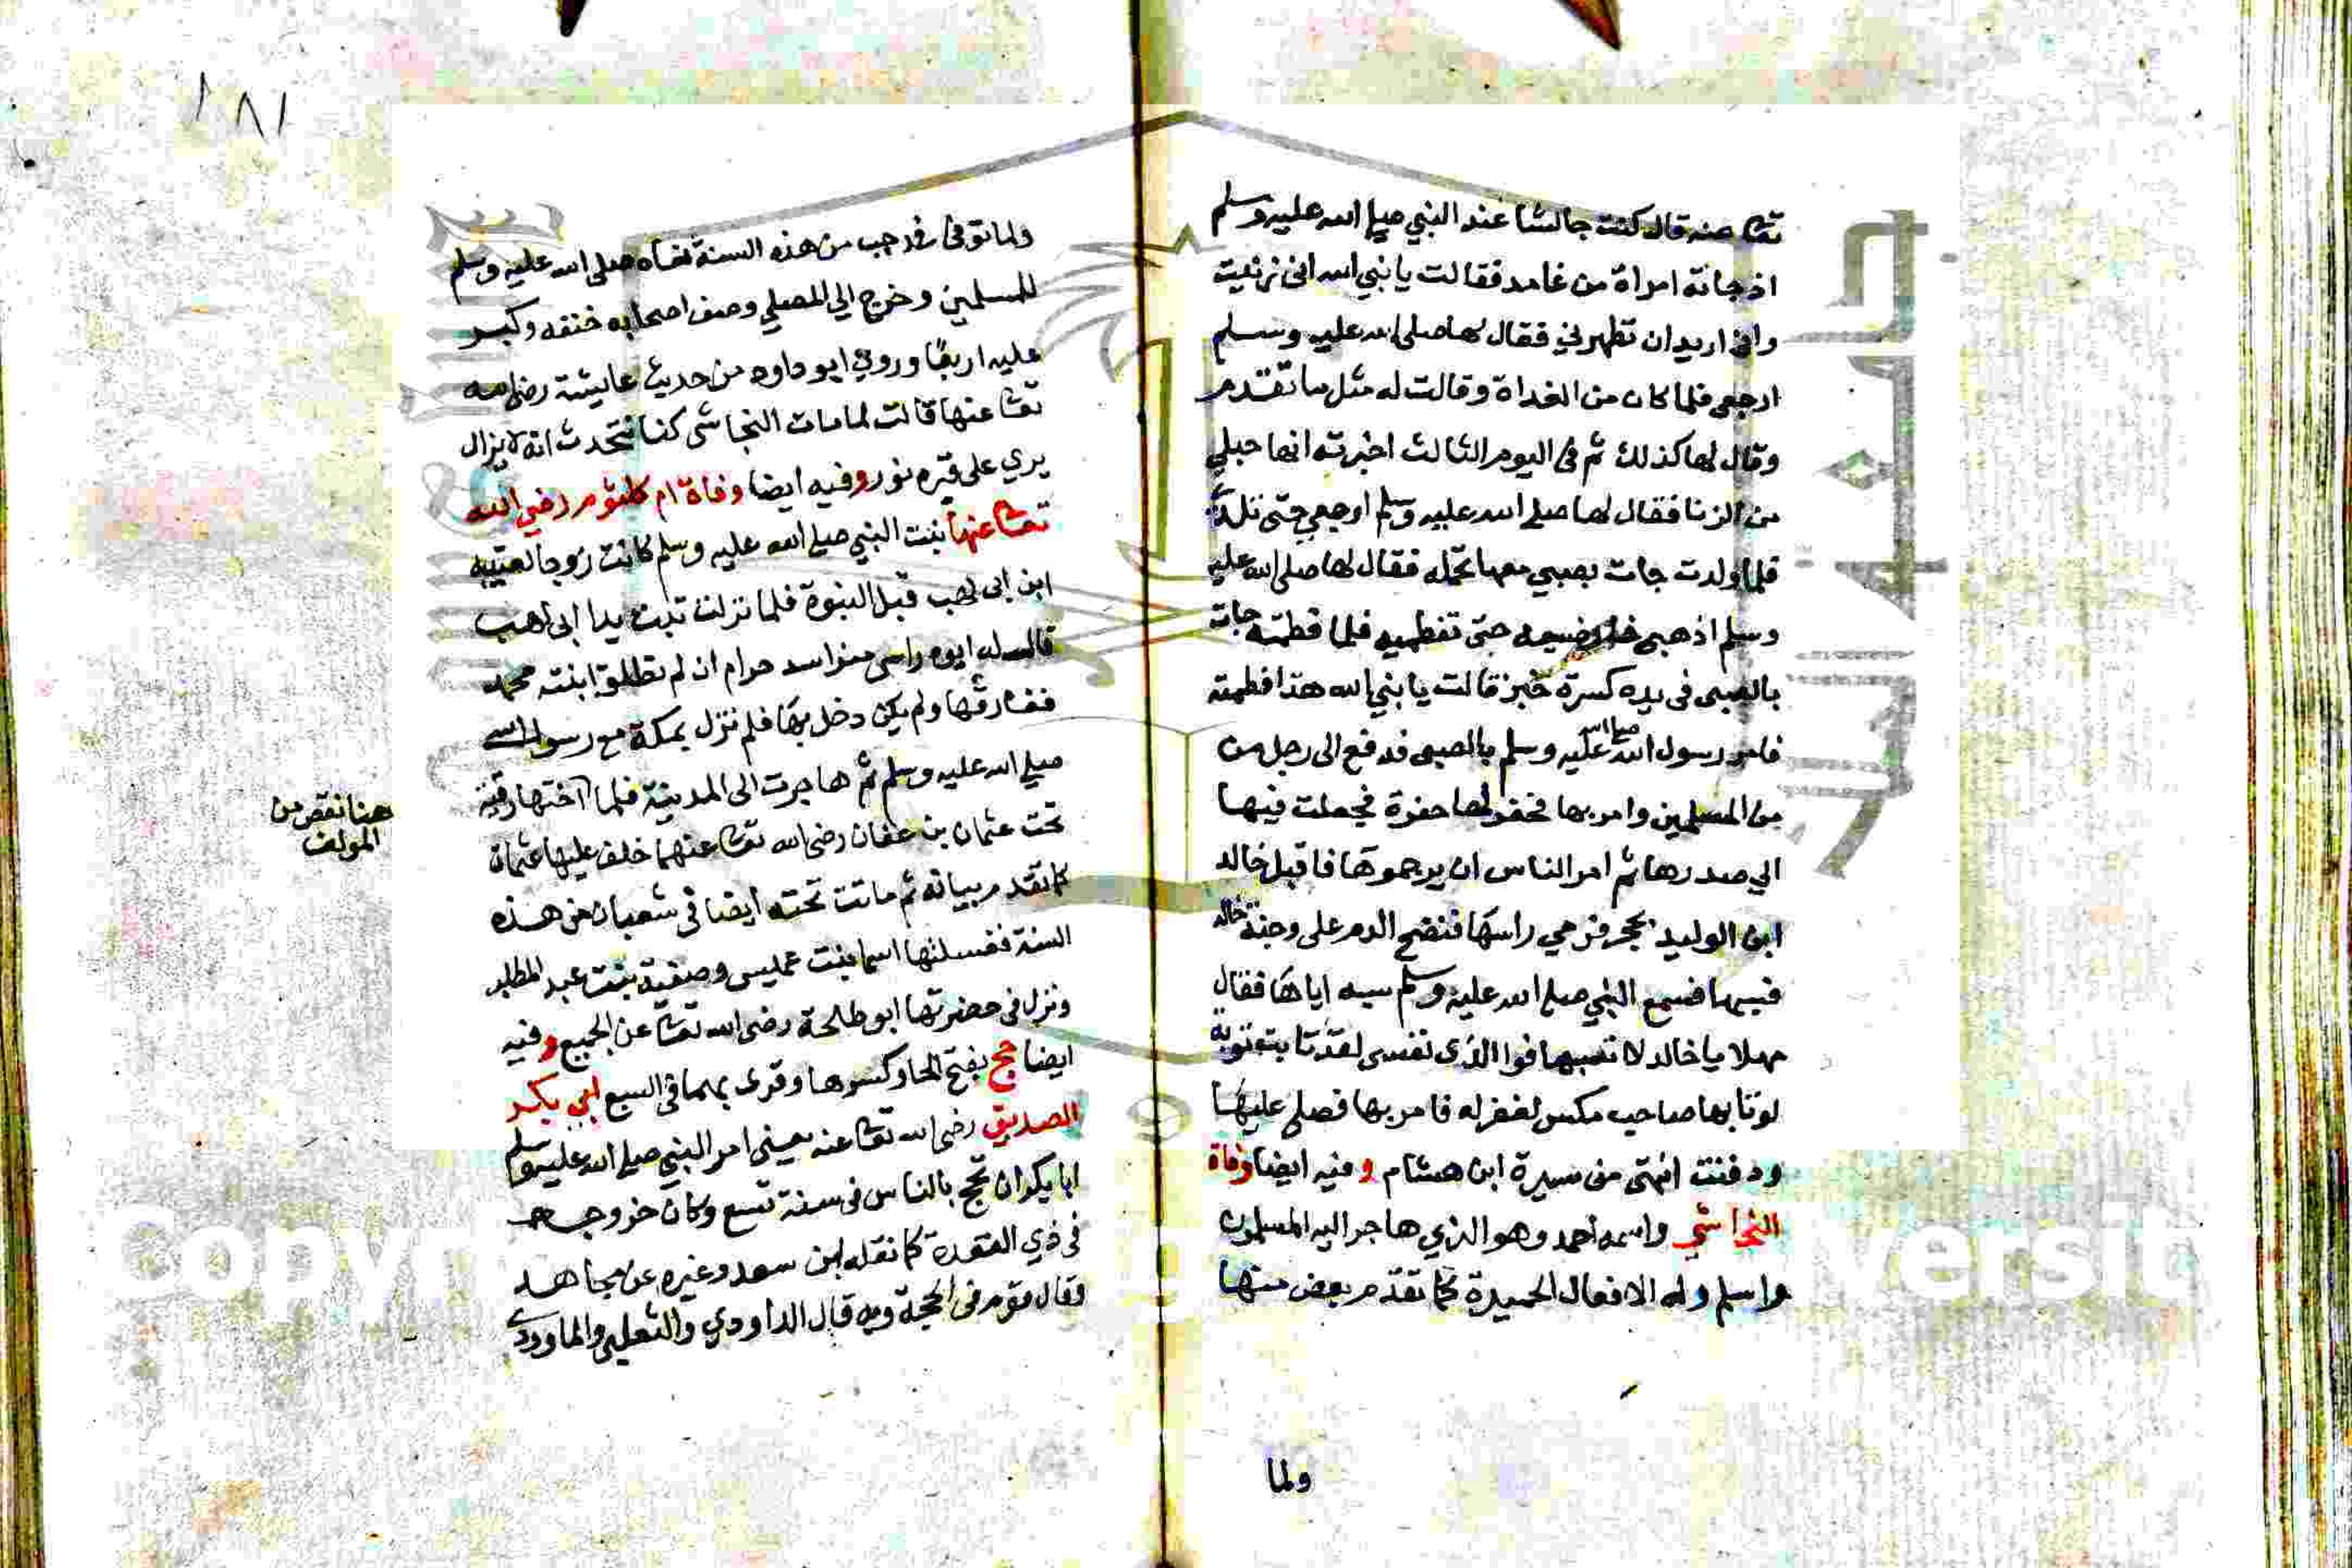 تعا عنه قال كنت جالسا عند النبي صلى الله عليه وسلم
اذ جاته امراة من غامد فقالت يا نبي الله اني زنيت
واني اريد ان تطهرني فقال لها صلى الله عليه وسلم
ارجعي فلما كان من الغداة وقالت له مثل ما تقدم
وقال لها كذلك ثم في اليوم الثالث اخبرته انها حبلي
من الزنا فقال لها صلى الله عليه وسلم ارجعي حتى تلدي
فلما ولدت جات بصبي معها تحمله فقال لها صلى الله عليه
وسلم اذهبي فارضعيه حتى تفطميه فلما فطمته جات
بالصبى في يده كسرة خبز قالت يا نبي الله هذا فطمته
فامر رسول الله صلى الله عليه وسلم بالصبى فدفع الى رجل من
من المسلمين وامر بها فحفر لها حفرة فجعلت فيها
الي صدرها ثم امر الناس ان يرجموها فاقبل خالد
ابن الوليد بحجر فرمي راسها فنضح الدم على وجنة خالد
فسبها فسمع النبي صلى الله عليه وسلم سبه اياها فقال
مهلا يا خالد لا تسبها فوا الذى نفسى لقد تابت توبة
لو تابها صاحب مكس لغفر له فامر بها فصلى عليها
ودفنت انتهى من سيرة ابن هشام وفيه ايضا وفاة
النجاشي واسمه احمد وهو الذي هاجر اليه المسلمون
واسلم وله الافعال الحميدة كما تقدم بعض منها
ولما
١٨١
ولما توفى في رجب من هذه السنة نعاه صلى الله عليه وسلم
للمسلمين وخرج الي المصلي وصف اصحابه خلفه وكبر
عليه اربعا وروي ابو داود من حديث عايشة رضى الله
تعا عنها قالت لما مات النجاشى كنا نتحدث انه لا يزال
يري على قبره نور وفيه ايضا وفاة ام كلثوم رضي الله
تعا عنها بنت النبي صلى الله عليه وسلم كانت زوجا لعتيبه
ابن ابى لهب قبل النبوة فلما نزلت تبت يدا ابى لهب
قال له ابوه راسى من راسك حرام ان لم تطلق ابنته محمد
ففارقها ولم يكن دخل بها فلم تزل بمكة مع رسول الله
صلى الله عليه وسلم ثم هاجرت الى المدينة فلما اختها رقية
تحت عثمان بن عفان رضى الله تعا عنهما خلف عليها عثمان
كما تقدم بيانه ثم ماتت تحته ايضا في شعبان من هذه
السنة فغسلتها اسما بنت عميس وصفية بنت عبد المطلب
ونزل في حضرتها ابو طلحة رضى الله تعا عن الجميع وفيه
ايضا حج بفتح الحا وكسرها وقرى بهما في السبع ابي بكر
الصديق رضى الله تعا عنه يعني امر النبي صلى الله عليه وسلم
ابا بكر ان يحج بالناس في سنة تسع وكان خروجه
في ذي القعدة كما نقله ابن سعد وغيره عن مجاهد
وقال قوم في الحجة وبه قال الداودي والثعلبي والماوردي
هنا نقص من
المولف